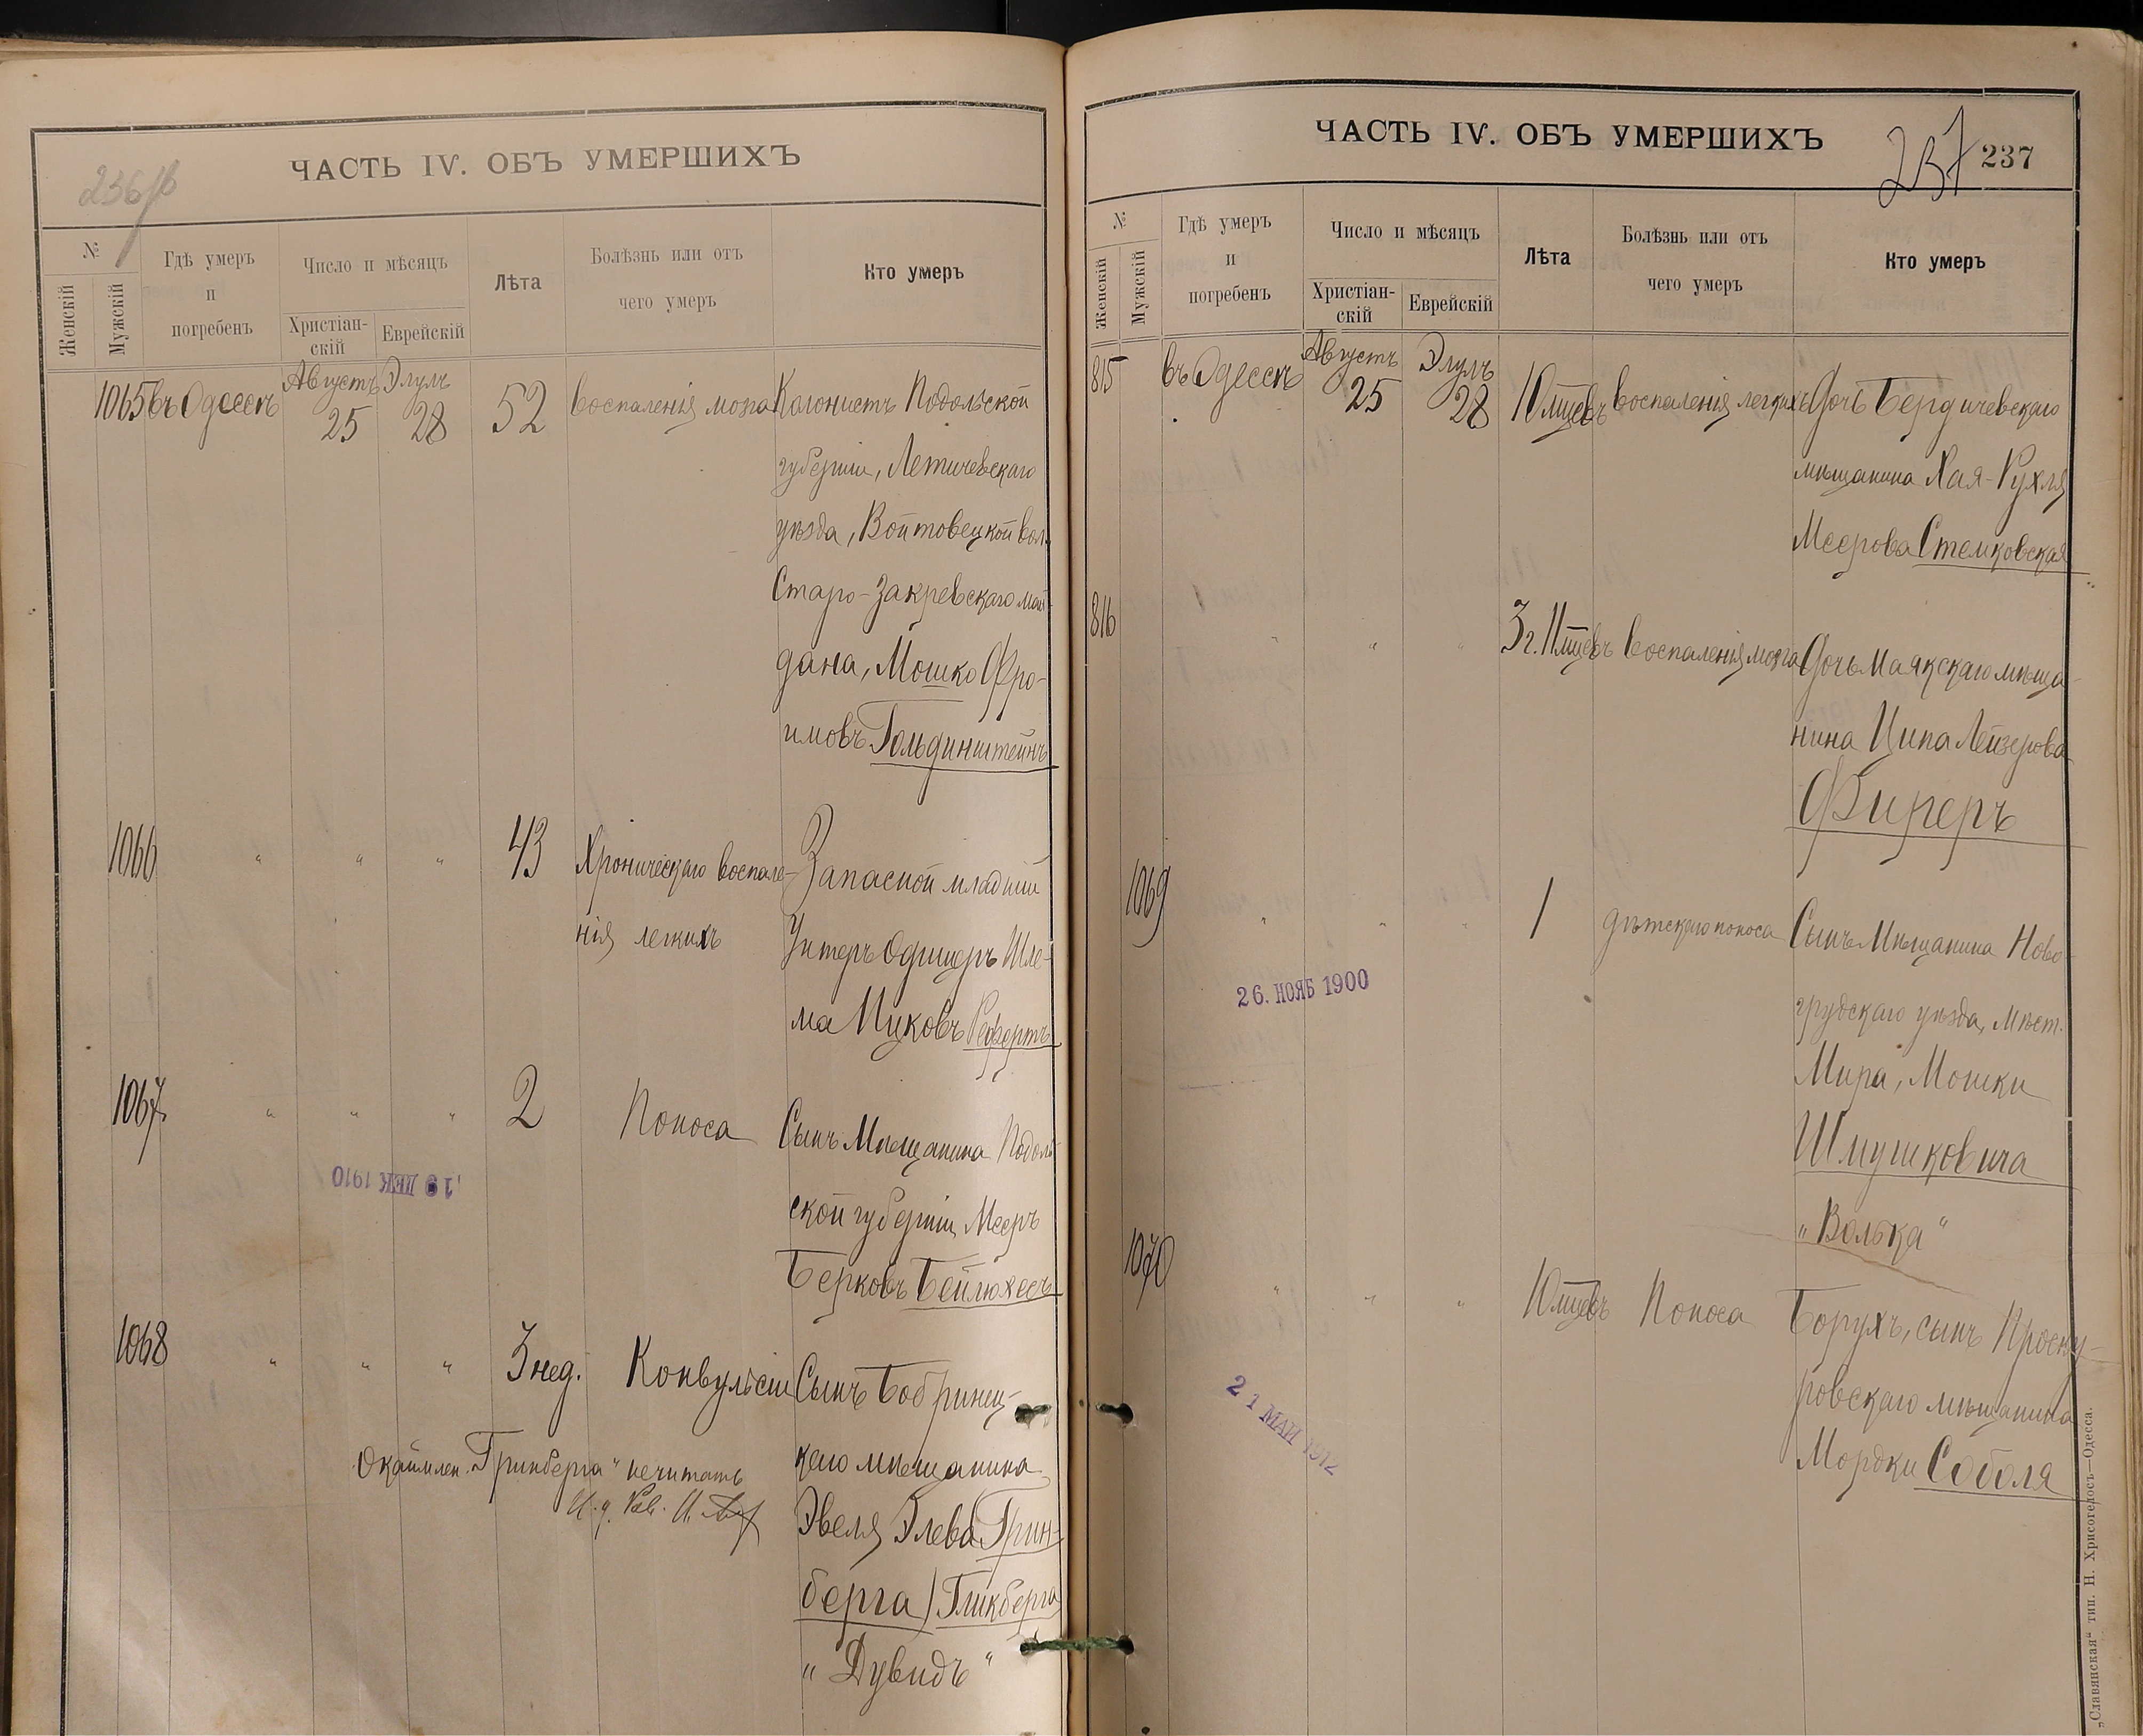 ЧАСТЬ IV. ОБЪ УМЕРШИХЪ
236/б
№
Женскій
Мужскій
Гдѣ умеръ
и
погребенъ
Число и мѣсяцъ
Христіан-
скій
Еврейскій
Лѣта
Болѣзнь или отъ
чего умеръ
Кто умеръ
1065 въ Одессѣ Августъ 25 Элулъ 28 52 воспаленія мозга Колонистъ Подольской
губерніи, Летичевскаго
уѣзда, Войтовецкой вол.
Старо-Закревскаго май-
дана, Мошко Фро-
имовъ Гольдинштейнъ
1066 " " " 43 Хроническаго воспале- Запасной младшій
нія легкихъ Унтеръ Офицеръ Шле-
ма Ицковъ
1067 " " " 2 Поноса Сынъ Мѣщанина Подоль
ской губерніи Мееръ
Берковъ Бейлюхесъ
19 ДЕК 1910
1068 " " " 3 нед. Конвульсіи Сынъ Бобринец-
каго мѣщанина
Эвеля Элева Грин-
берга) Гликберга
" Дувидъ "
Окаймлен. "Гринберга" нечитать
И. д. Рав. И.
ЧАСТЬ IV. ОБЪ УМЕРШИХЪ
237
237
№
Женскій
Мужскій
Гдѣ умеръ
и
погребенъ
Число и мѣсяцъ
Христіан-
скій
Еврейскій
Лѣта
Болѣзнь или отъ
чего умеръ
Кто умеръ
815 въ Одессѣ Августъ 25 Элулъ 28 10 мцевъ воспаленія легкихъ Дочь Бердичевскаго
мѣщанина Хая-Рухля
Меерова Стемковская
816 " " " 3 г. 11 мцевъ воспаленія мозга Дочь Маякскаго мѣща-
нина Ципа Лейзерова
Фигеръ
1069 " " " 1 дѣтскаго поноса Сынъ Мѣщанина Ново-
грудскаго уѣзда, Мѣст.
Мира, Мошки
Шмушковича
"Волька"
26. НОЯБ 1900
1070 " " " 10 мцевъ Поноса Борухъ, сынъ Проску-
ровскаго мѣщанина
Мордки Соболя
21 МАЙ 1912
„Славянская“ тип. Н. Хрисогелосъ—Одесса.